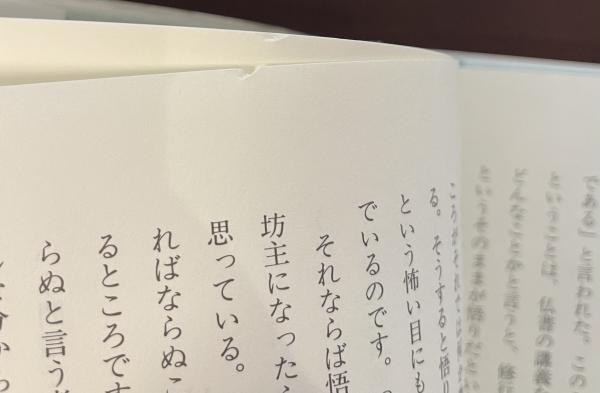 である」と言われた。この
ということは、仏書の講義な
どんなことかと言うと、修行
というそのままが悟りだとい
ころがそれでは
る。そうすると悟り
という怖い目にも
でいるのです。
それならば悟
坊主になったら
思っている。
ればならぬこ
るところです
らぬと言う